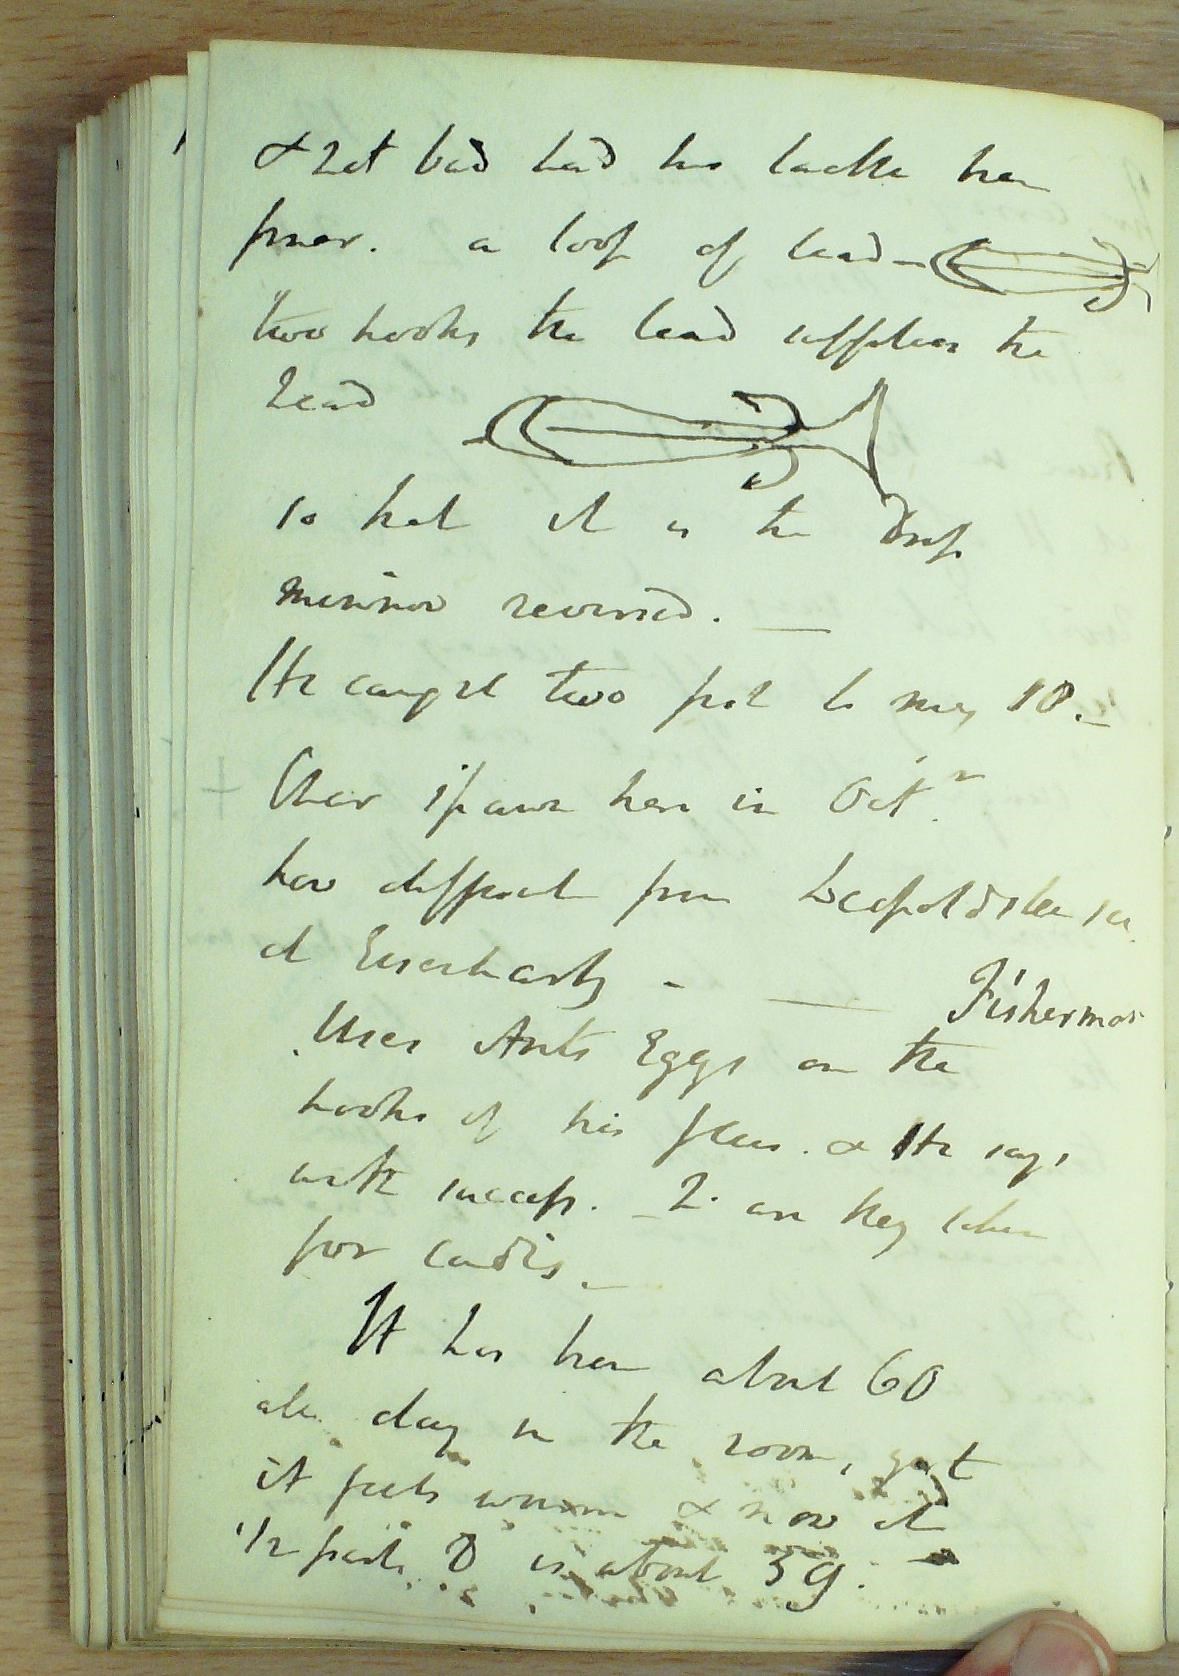 & not bad had his tackle been
finer. a loop of lead
two hooks the lead supplies the
head
so that it is the drop
minnow reversed.
He caught two fish to my 10.
Char spawn here in Octr
how different from Leopoldsteiner
at Eisenhartz - Fisherman
Uses Ants Eggs on the
hooks of his flies. & He says
with success. - I. are they taken
for cadis
It has been about 60
all day in the room, yet
it feels warm & now at
1/2 past 8 is about 59.